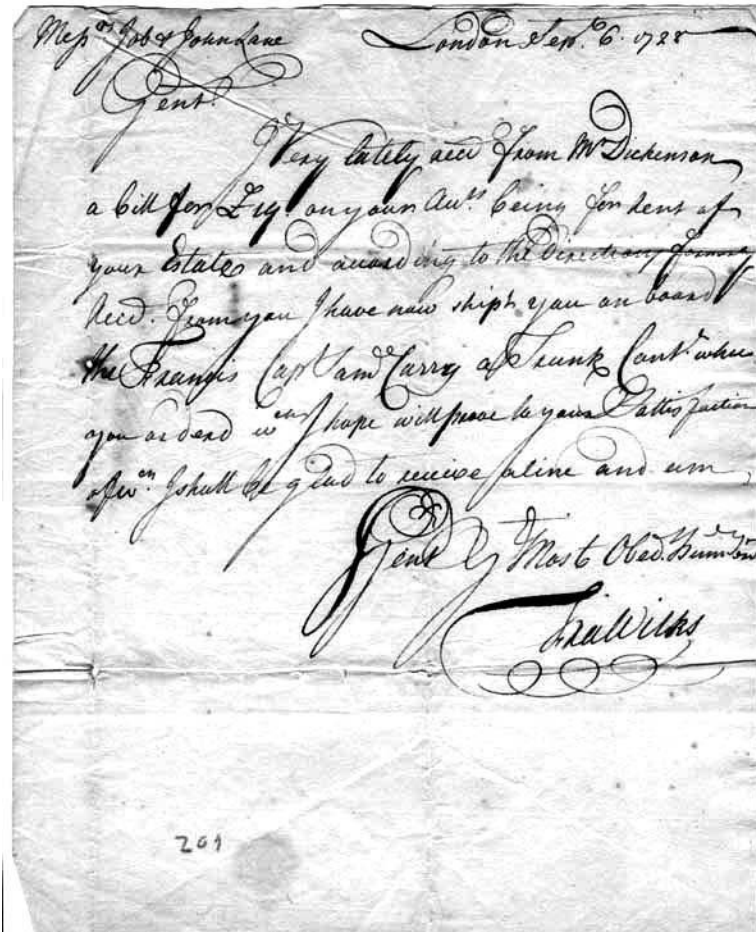 Mess.rs Job & John Lane London Sep.r 6. 1728
Gent.
I Very lately recd from Mr Dickenson
a bill for £19. on your Acc.ts being for Rent of
your Estate and according to the Direction formerly
Recd. from you I have now shipt you on board
the Francis Cap.t Sam.l Carry a Trunk Cont.g what
you orderd w.ch I hope will prove to your Sattisfaction
of w.ch I shall be glad to receive a line and am
Gent. Y.r Most Obed. Hum.le
Fra Wilks
201